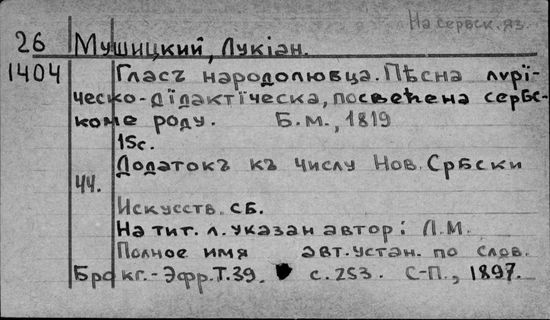 На сервск. яз.
26 Мушицкий, Лукіан.
1404 Гласъ народолювца. Пѣсна лѵрї-
ческо-дїдактїческа, посвећена сербс-
коме роду. Б.м., 1819
15с.
Додатокъ къ числу Нов. Србски
44.
Искусств. сб.
На тит. л. указан автор: Л.М.
Полное имя авт. устан. по слов.
Брокг.-Эфр. Т.39. с.253. С-П., 1897.